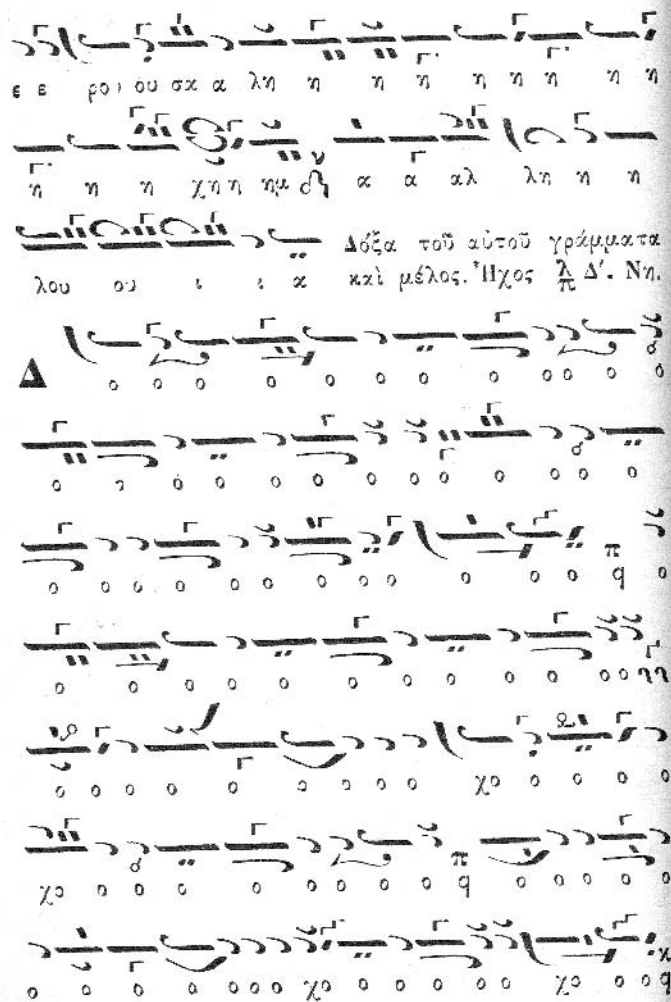 ε ε ρο ου σκα α λη η η η η η η η η
η η η χη η ημ α α αλ λη η η
λου ου ι ι α Δόξα τοῦ αὐτοῦ γράμματα
καὶ μέλος. Ἦχος λ/π Δ΄. Νη.
Δ ο ο ο ο ο ο ο ο ο ο ο ο
ο ο ο ο ο ο ο ο ο ο ο ο ο ο
ο ο ο ο ο ο ο ο ο ο ο ο π q ο
ο ο ο ο ο ο ο ο ο ο ο
ο ο ο ο ο ο ο ο ο χο ο ο ο ο
χο ο ο ο ο ο ο ο ο π q ο ο ο ο ο
ο ο ο ο ο ο ο χο ο ο ο ο ο χο ο ο q